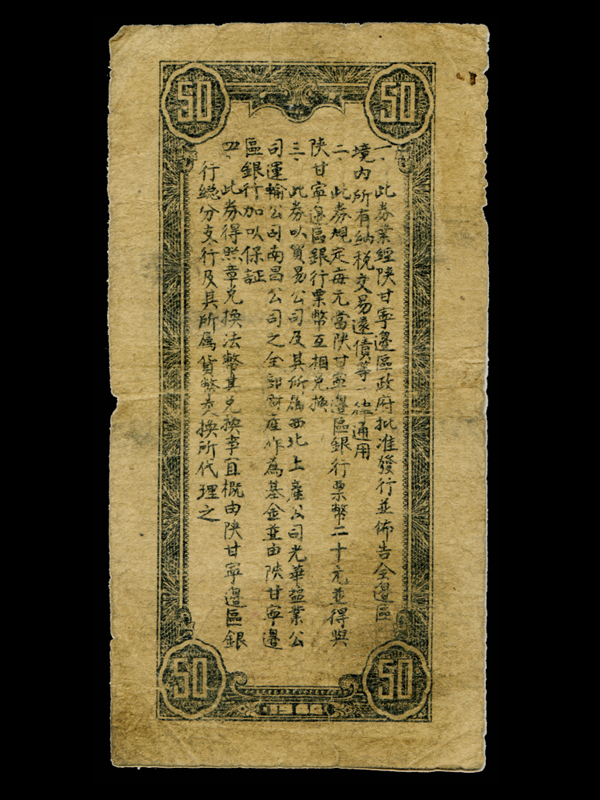 50 50
一、此券業經陝甘寧邊區政府批准發行並佈告全邊區
境内所有納稅交易還債等一律通用
二、此券規定每元當陝甘寧邊區銀行票幣二十元並得與
陝甘寧邊區銀行票幣互相兌換
三、此券以貿易公司及其所屬西北土產公司光華盐業公
司運輸公司南昌公司之全部財產作爲基金並由陝甘寧邊
區銀行加以保証
四、此券得照章兌換法幣其兌換事宜概由陝甘寧邊區銀
行總分支行及其所屬貨幣交換所代理之
50 50
1944